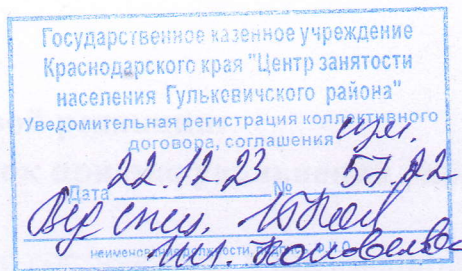 Государственное казенное учреждение
Краснодарского края "Центр занятости
населения Гулькевичского района"
Уведомительная регистрация коллективного
договора, соглашения
Дата 22.12.23 № 57.22
Вед спец.
наименование должности, подпись, Ф.И.О.